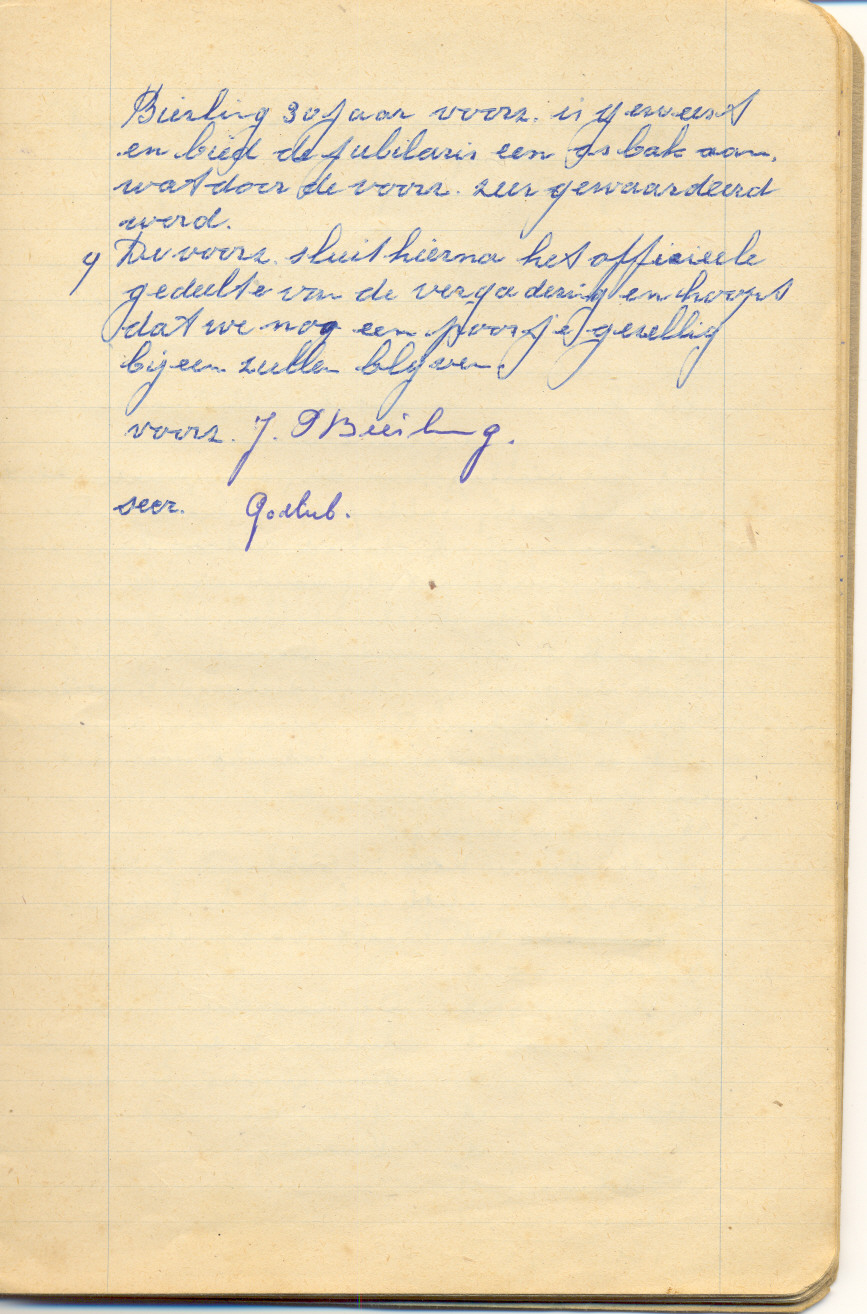 Bierling 30 jaar voorz. is geweest
en bied de jubilaris een asbak aan,
wat door de voorz. zeer gewaardeerd
werd.
9 De voorz. sluit hierna het officieele
gedeelte van de vergadering en hoopt
dat we nog een poosje gezellig
bijeen zullen blijven.
voorz. J. Bierling.
secr.